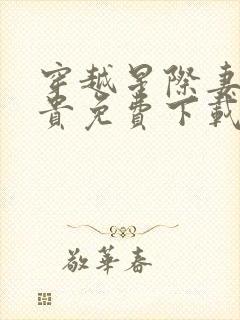 穿越星際妻
貴免費下載
敬華春